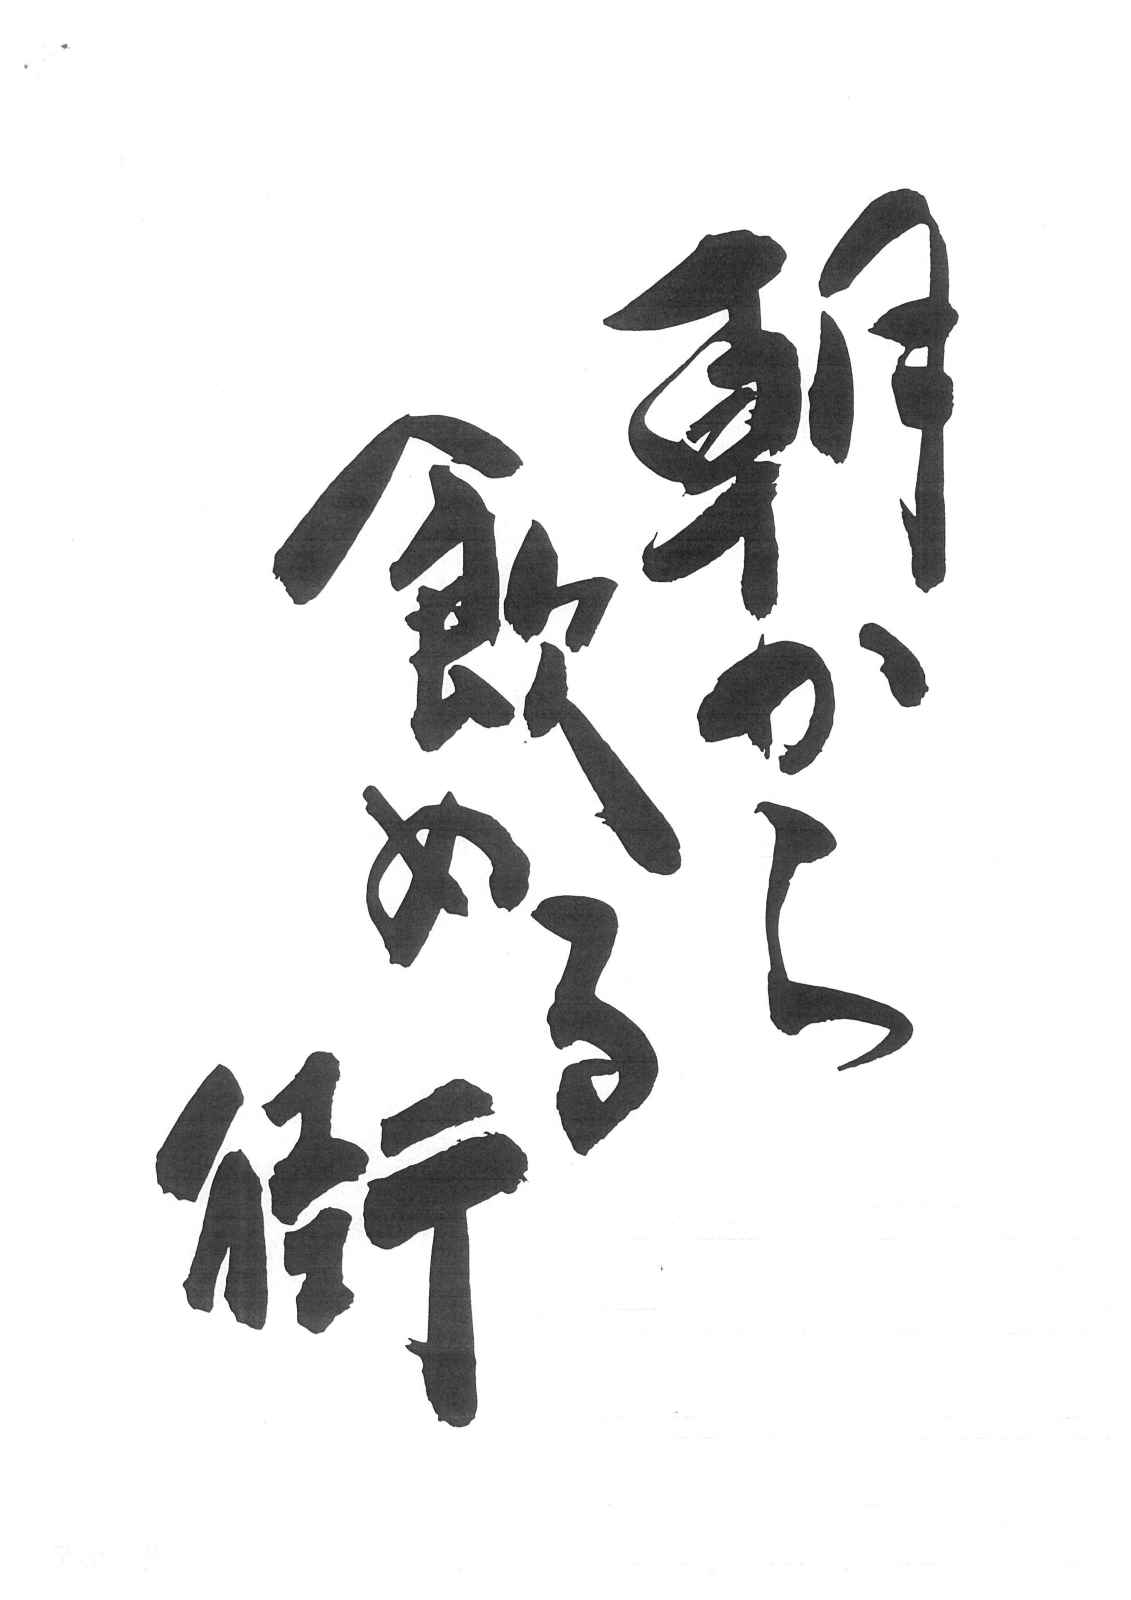 朝から
飲める
街